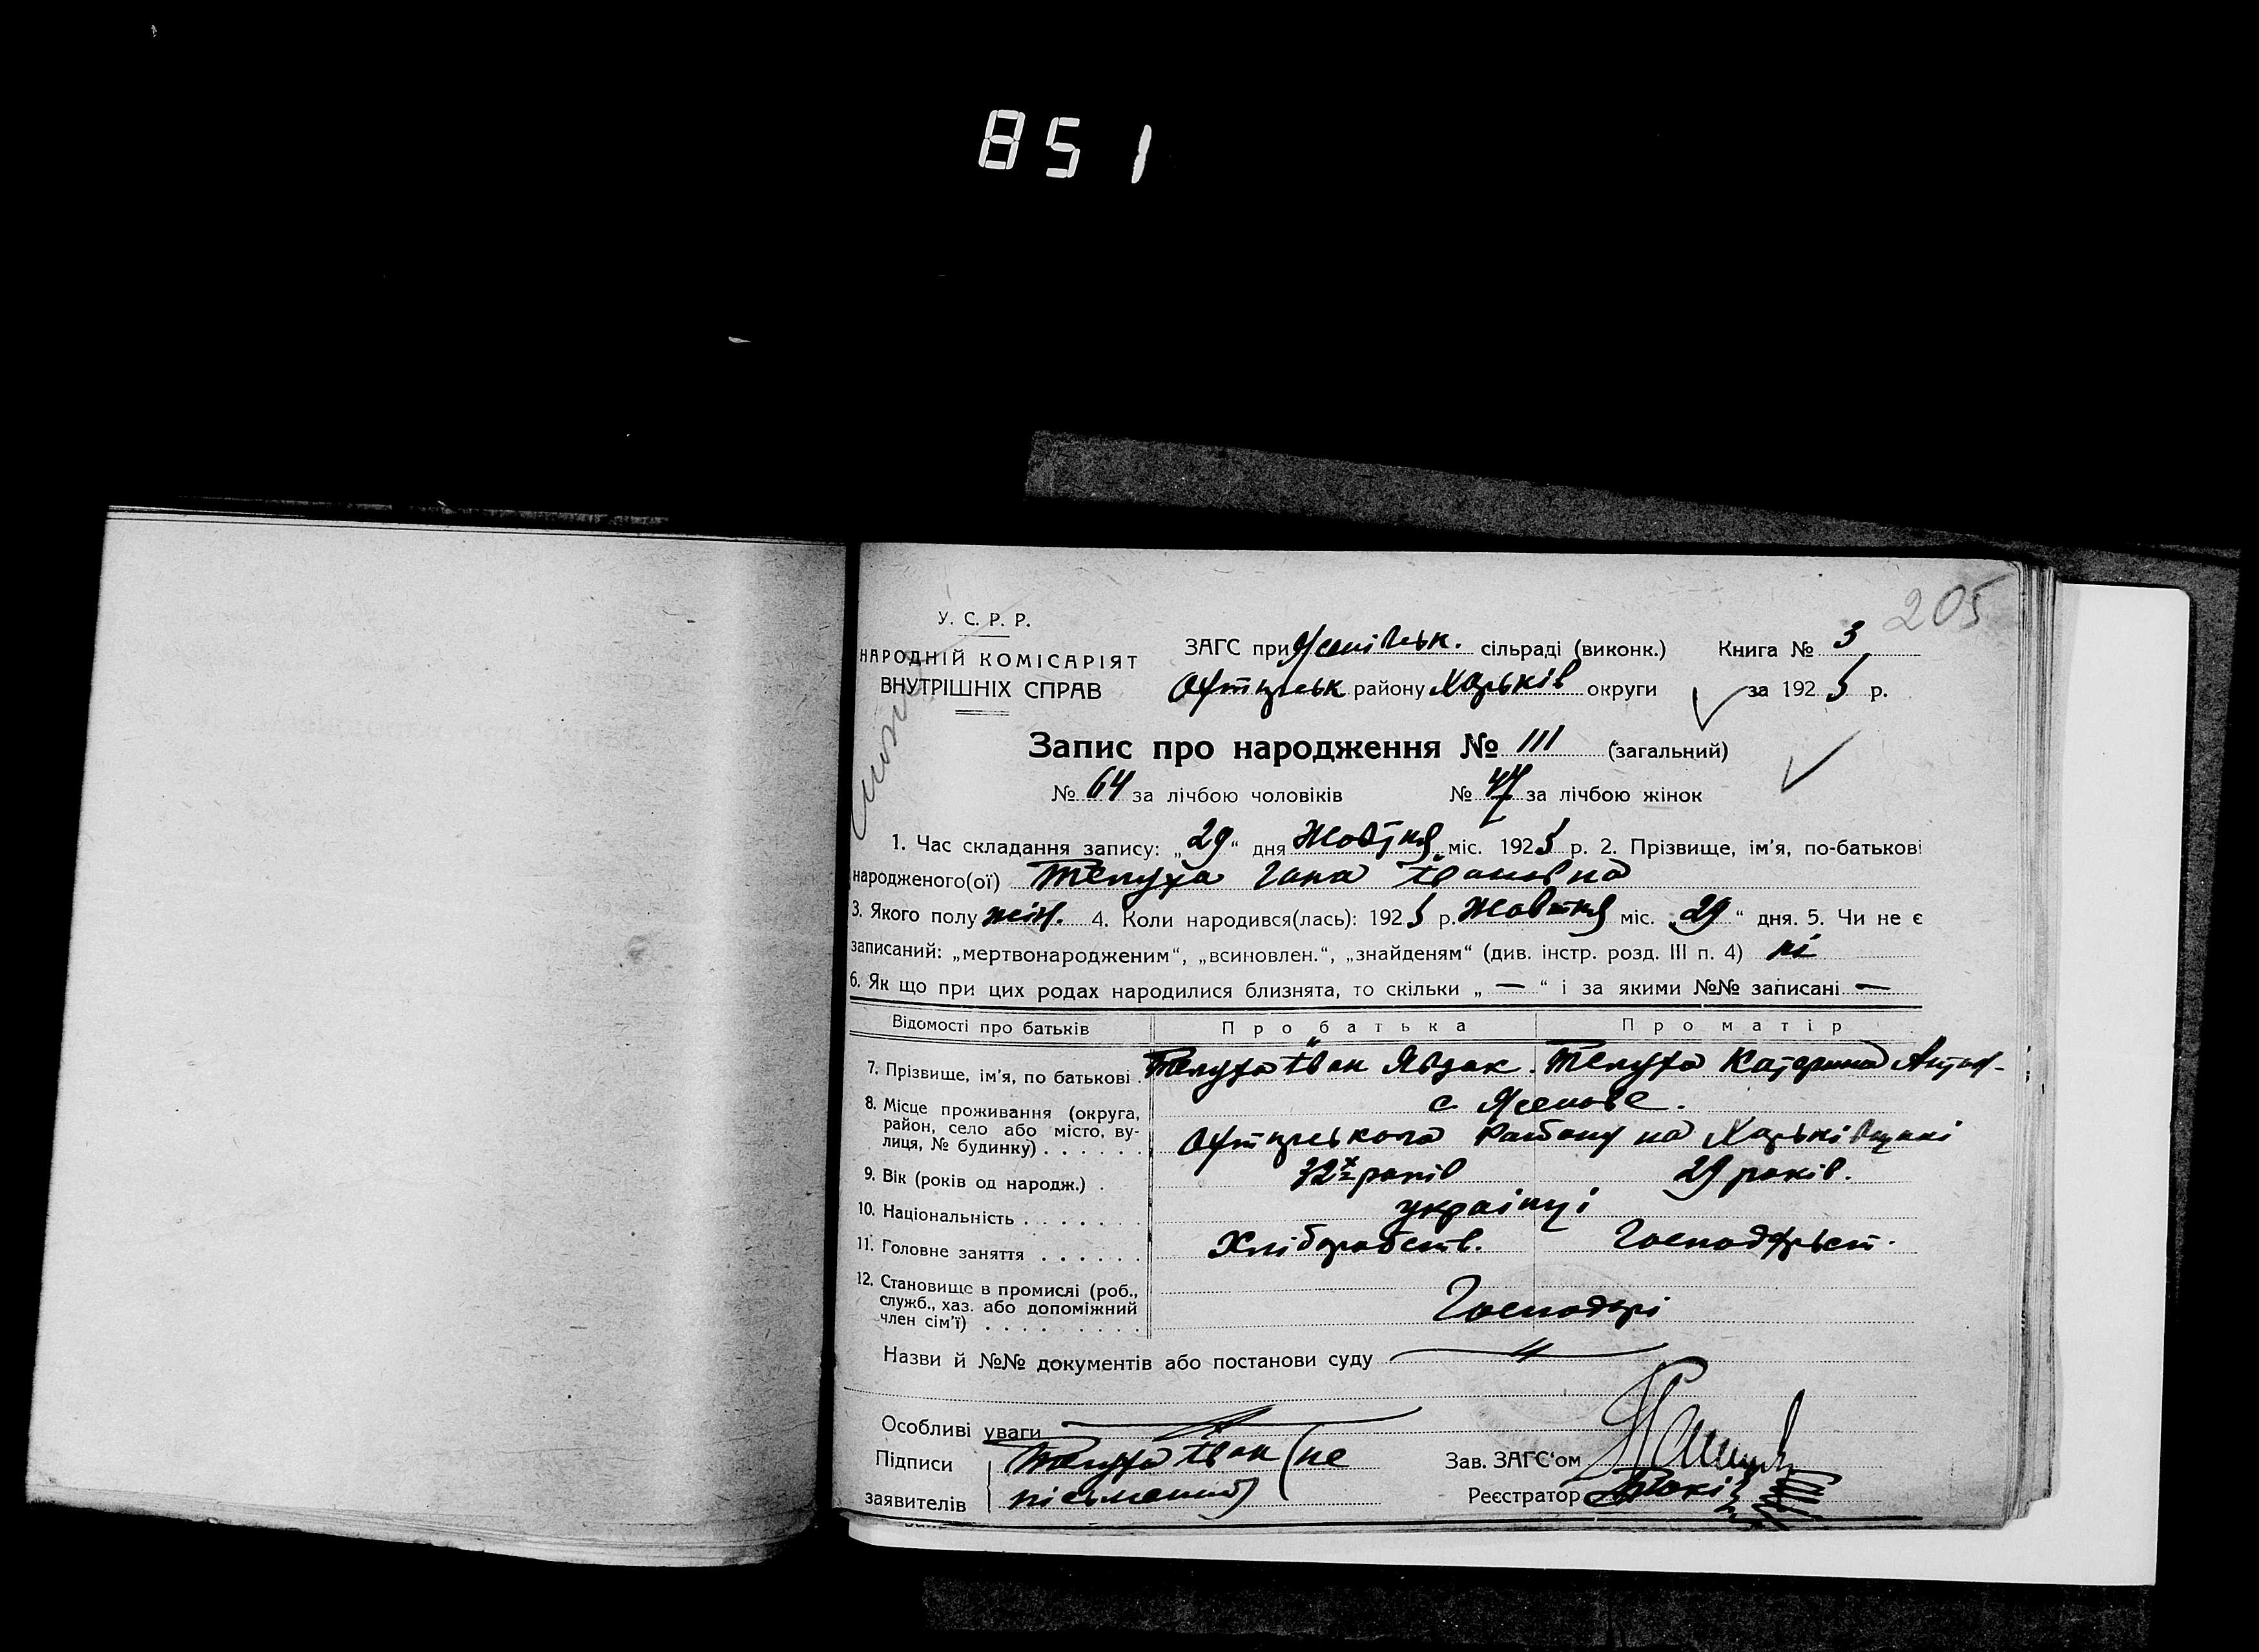 851
205
У. С. Р. Р.
НАРОДНІЙ КОМІСАРІЯТ
ВНУТРІШНІХ СПРАВ
ЗАГС при Ясенівськ. сільраді (виконк.) Книга № 3
Охтирськ району Харьків округи за 1925 р.
Запис про народження № 111 (загальний)
№ 64 за лічбою чоловіків № 47 за лічбою жінок
1. Час складання запису: „29“ дня Жовтня міс. 1925 р. 2. Прізвище, ім'я, по-батькові
народженого(ої) Телуха Гана Івановна
3. Якого полу жін. 4. Коли народився(лась): 1925 р. Жовтня міс. „29“ дня. 5. Чи не є
записаний: „мертвонародженим“, „всиновлен.“, „знайденям“ (див. інстр. розд. III п. 4) ні
6. Як що при цих родах народилися близнята, то скільки „—“ і за якими №№ записані —
Відомості про батьків Про батька Про матір
7. Прізвище, ім'я, по батькові Телуха Іван Телуха Катерина
8. Місце проживання (округа, район, село або місто, вулиця, № будинку) с. Ясенове.
Охтирського району на Харьківщині
9. Вік (років од народж.) 32х років 29 років.
10. Національність українці
11. Головне заняття Хліборобств. Господарьст.
12. Становище в промислі (роб., служб., хаз. або допоміжний член сім'ї) Господарі
Назви й №№ документів або постанови суду
Особливі уваги
Підписи заявителів Телуха Іван (не
письмений)
Зав. ЗАГС'ом
Реєстратор